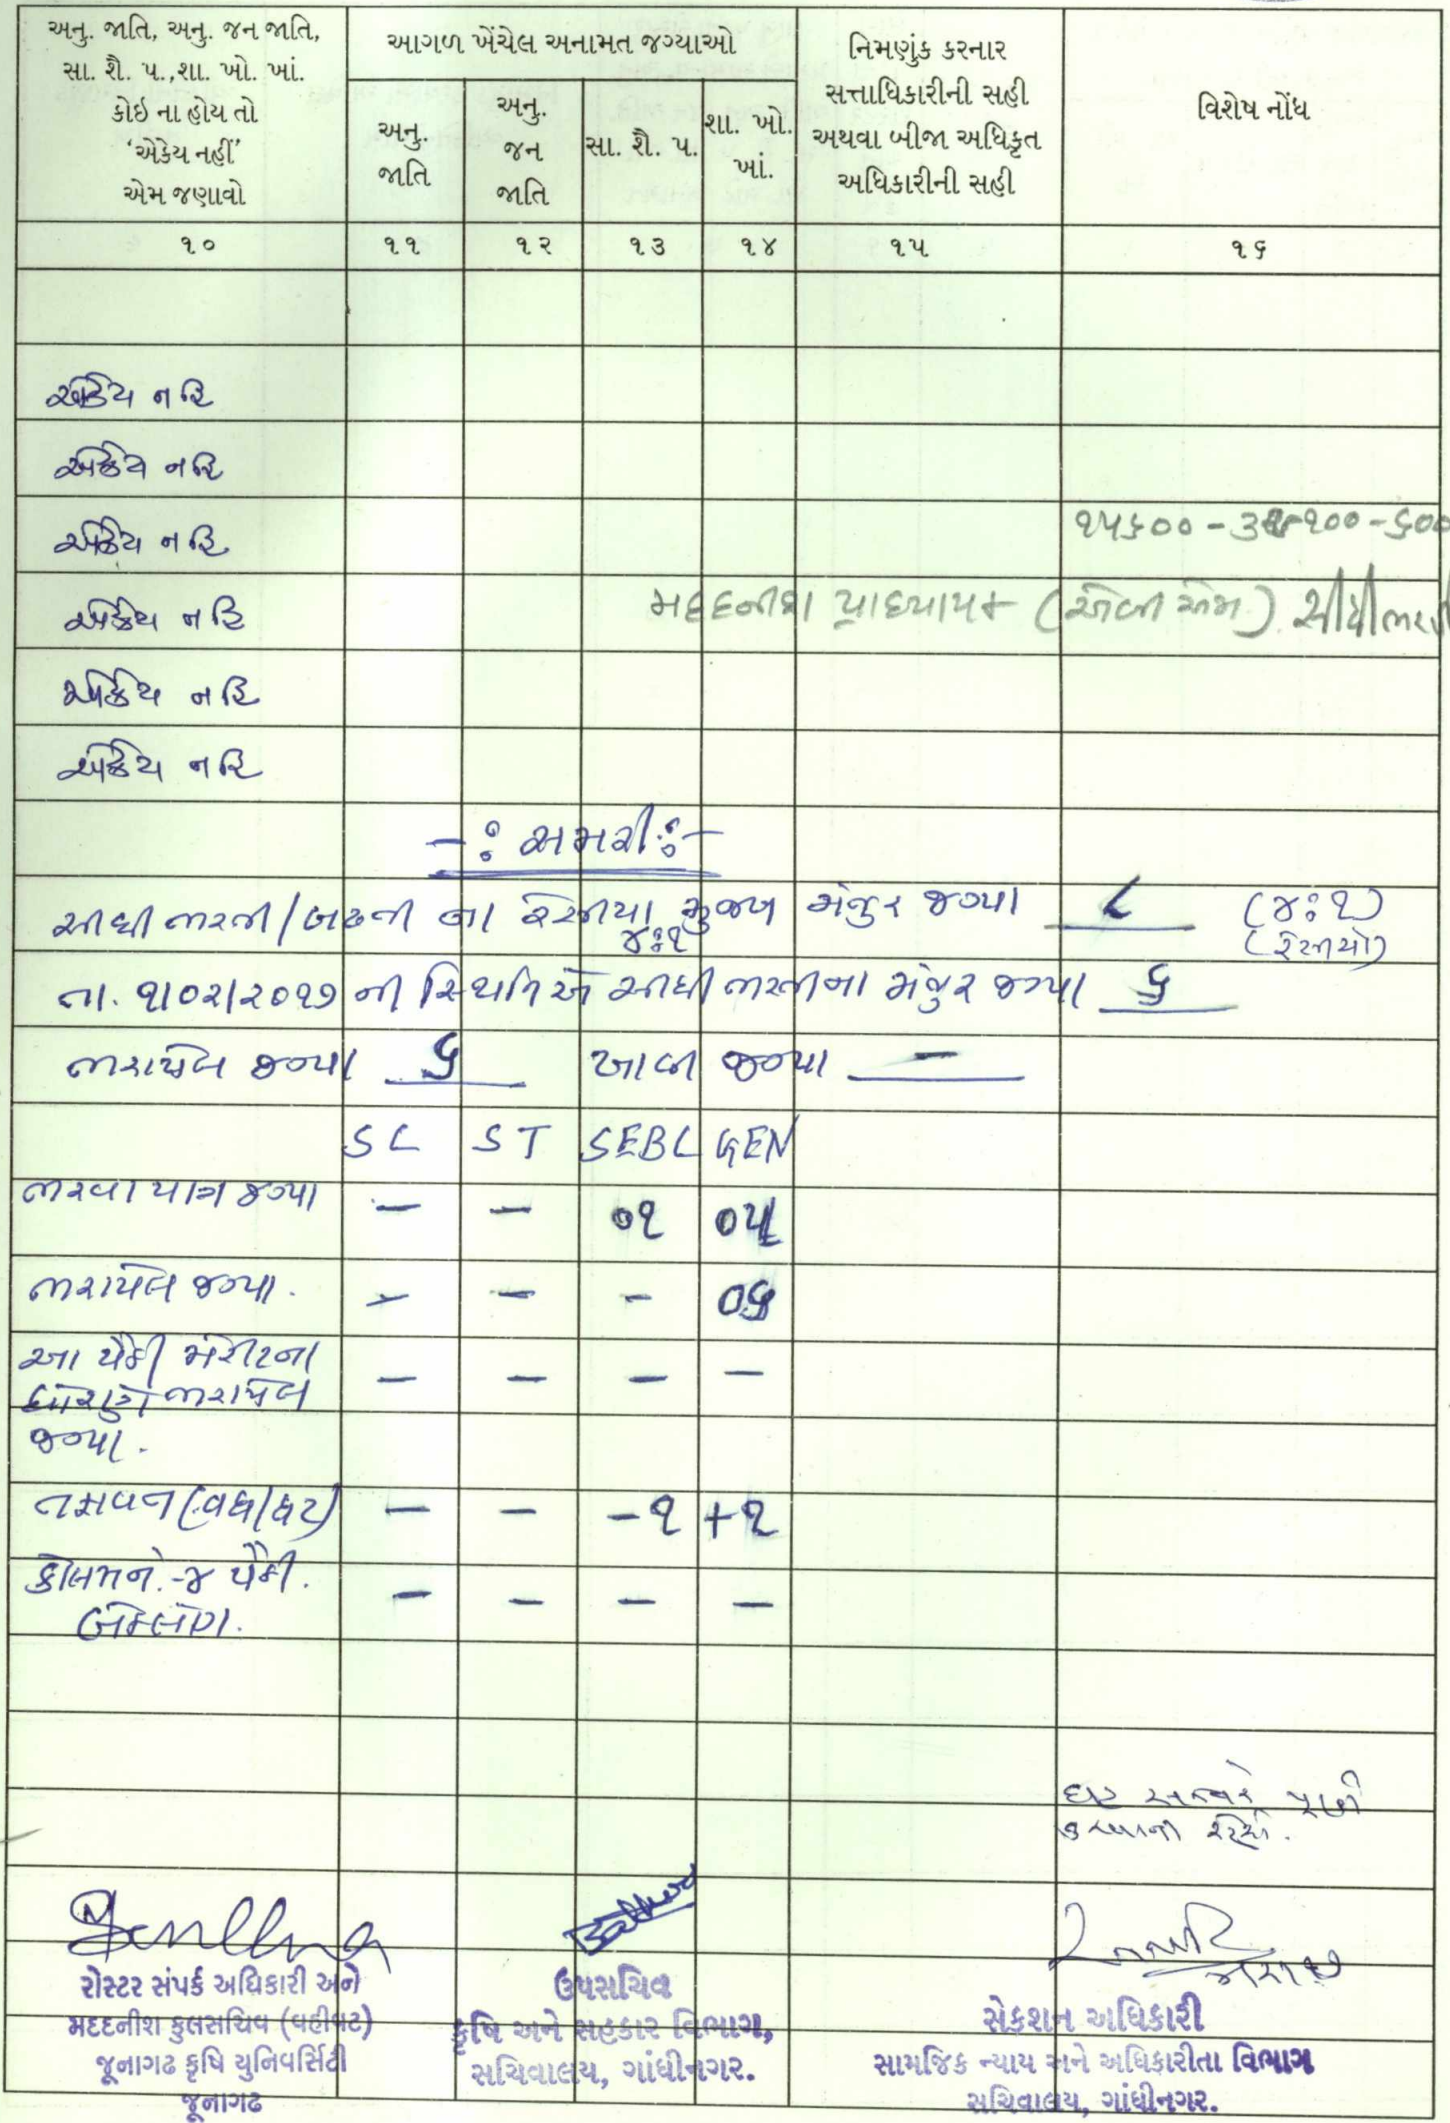 અનુ. જાતિ, અનુ. જન જાતિ,
સા. શૈ. પ.,શા. ખો. ખાં.
કોઇ ના હોય તો
‘એકેય નહીં’
એમ જણાવો
આગળ ખેંચેલ અનામત જગ્યાઓ
અનુ.
જાતિ
અનુ.
જન
જાતિ
સા. શૈ. પ.
શા. ખો.
ખાં.
નિમણુંક કરનાર
સત્તાધિકારીની સહી
અથવા બીજા અધિકૃત
અધિકારીની સહી
વિશેષ નોંધ
૧૦ ૧૧ ૧૨ ૧૩ ૧૪ ૧૫ ૧૬
એકેય નહિ
એકેય નહિ
એકેય નહિ
૧૫૬૦૦ - ૩૯૧૦૦ - ૬૦૦
એકેય નહિ
મદદનીશ પ્રાધ્યાપક (એબીએમ) સીધી ભરતી
એકેય નહિ
એકેય નહિ
-ઃ સમરી ઃ-
સીધી ભરતી/બઢતી ના રેશીયા મુજબ મંજુર જગ્યા ૮ (૪:૧)
૪:૧ (રેશીયો)
તા. ૧/૦૨/૨૦૧૭ ની સ્થિતિએ સીધી ભરતીના મંજુર જગ્યા ૬
ભરાયેલ જગ્યા ૬ ખાલી જગ્યા —
SC ST SEBC GEN
ભરવા પાત્ર જગ્યા — — ૦૧ ૦૫
ભરાયેલ જગ્યા. — — — ૦૬
આ પૈકી મેરીટના
ધોરણે ભરાયેલ — — — —
જગ્યા.
તફાવત (વધ/ઘટ) — — -૧ +૧
કોલમ નં.-૪ પૈકી.
બેકલોગ. — — — —
ઘટ સત્વરે પુરી
કરવાની રહેશે.
રોસ્ટર સંપર્ક અધિકારી અને
મદદનીશ કુલસચિવ (વહીવટ)
જૂનાગઢ કૃષિ યુનિવર્સિટી
જૂનાગઢ
ઉપસચિવ
કૃષિ અને સહકાર વિભાગ,
સચિવાલય, ગાંધીનગર.
સેકશન અધિકારી
સામાજિક ન્યાય અને અધિકારીતા વિભાગ
સચિવાલય, ગાંધીનગર.